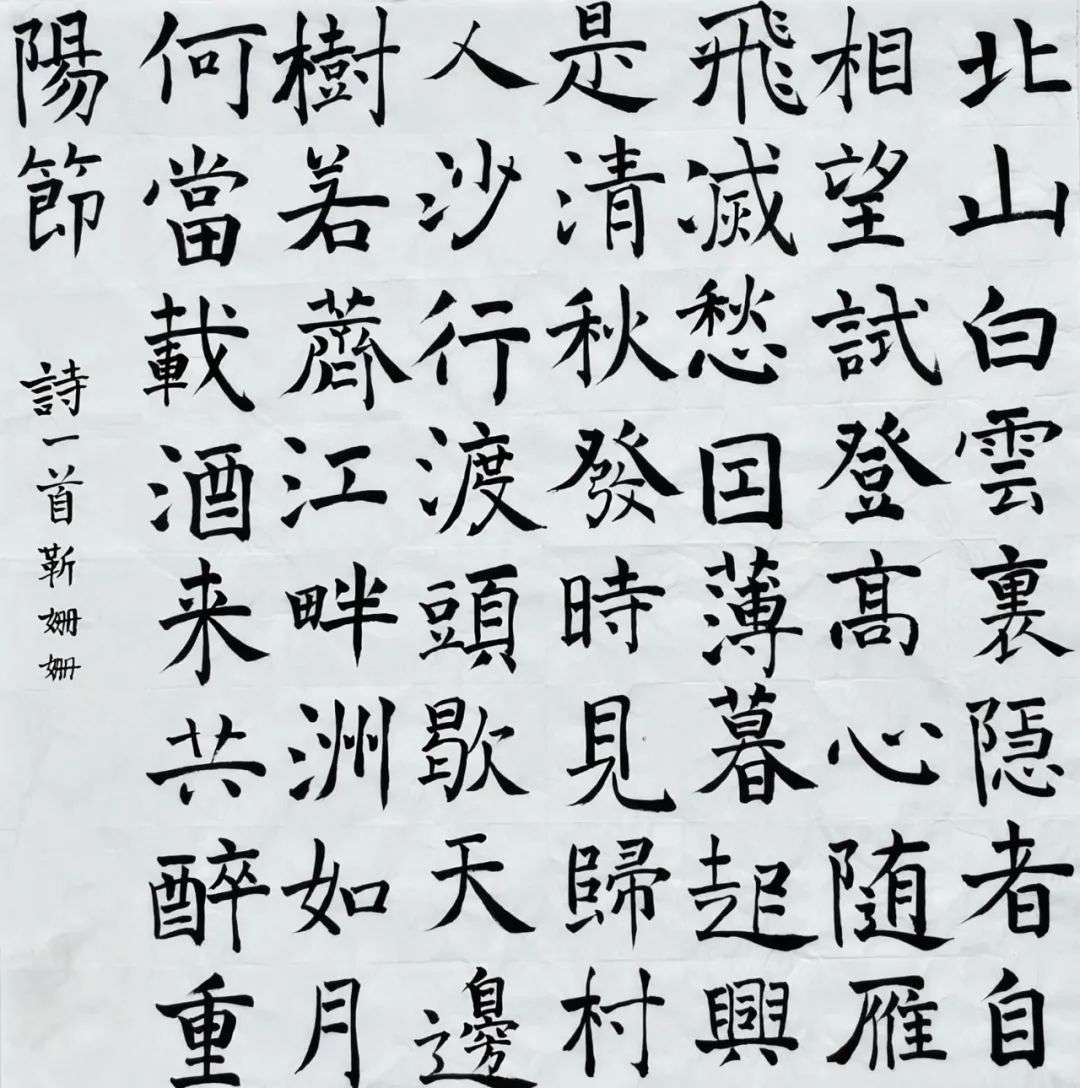 北山白雲裏隠者自
相望試登髙心随雁
飛滅愁囙薄暮起興
是清秋發時見歸村
人沙行渡頭歇天邊
樹若薺江畔洲如月
何當載酒来共醉重
陽節
詩一首靳姍姍